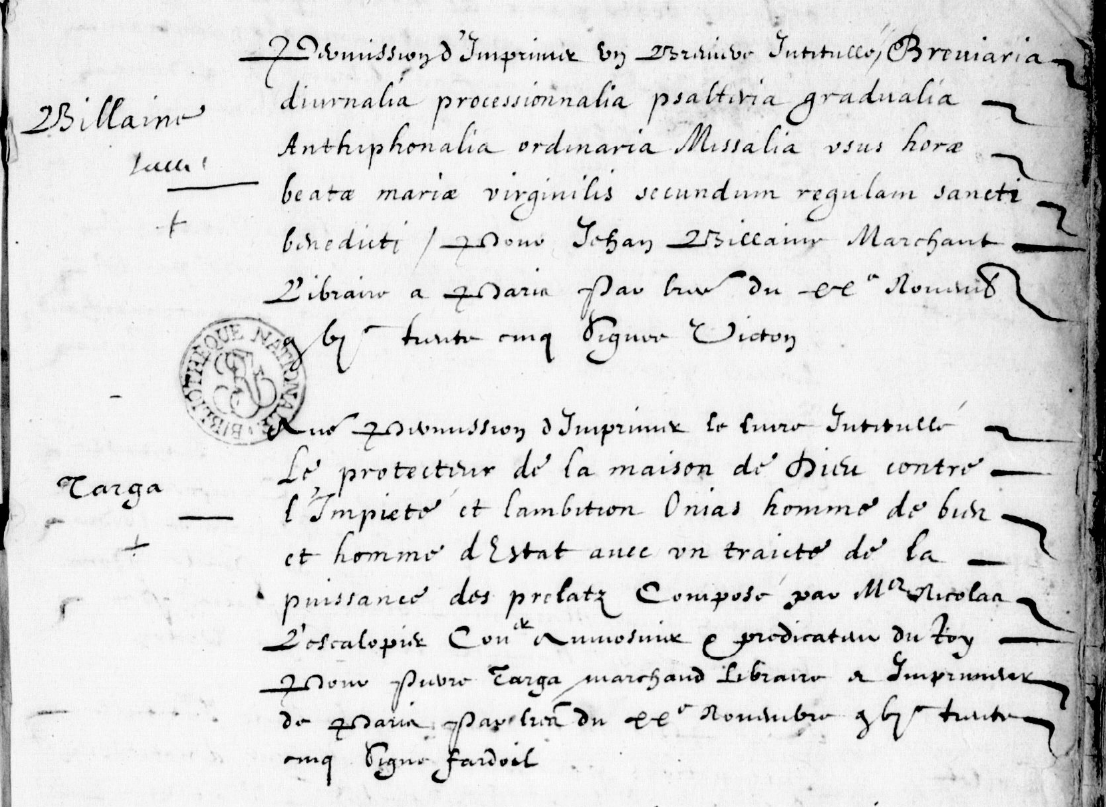 Permission d'Imprimer vn Breviere Intitullé / Breuiaria
diurnalia processionnalia psaltiria gradualia
Billaine
Anthiphonalia ordinaria Missalia vsus horæ
beatæ mariæ virginilis secundum regulam sancti
benedicti / Pour Jehan Billaine Marchant
Libraire a Paris Par lres du xxe Nouemb
trente cinq Signee Victon
BIBLIOTHEQUE NATIONALE
Permission d'Imprimer le liure Intitullé
Le protecteur de la maison de Dieu contre
Targa
l'Impieté et lambition Onias homme de bien
et homme d'Estat auec vn traicté de la
puissance des prelatz Composé par Mre Nicolas
Lescalopier Coner Aumosnier & predicateur du Roy
Pour Pierre Targa marchand Libraire et Imprimeur
de Paris Par lres du xxe Nouembre gbjc trente
cinq Signe fardoil